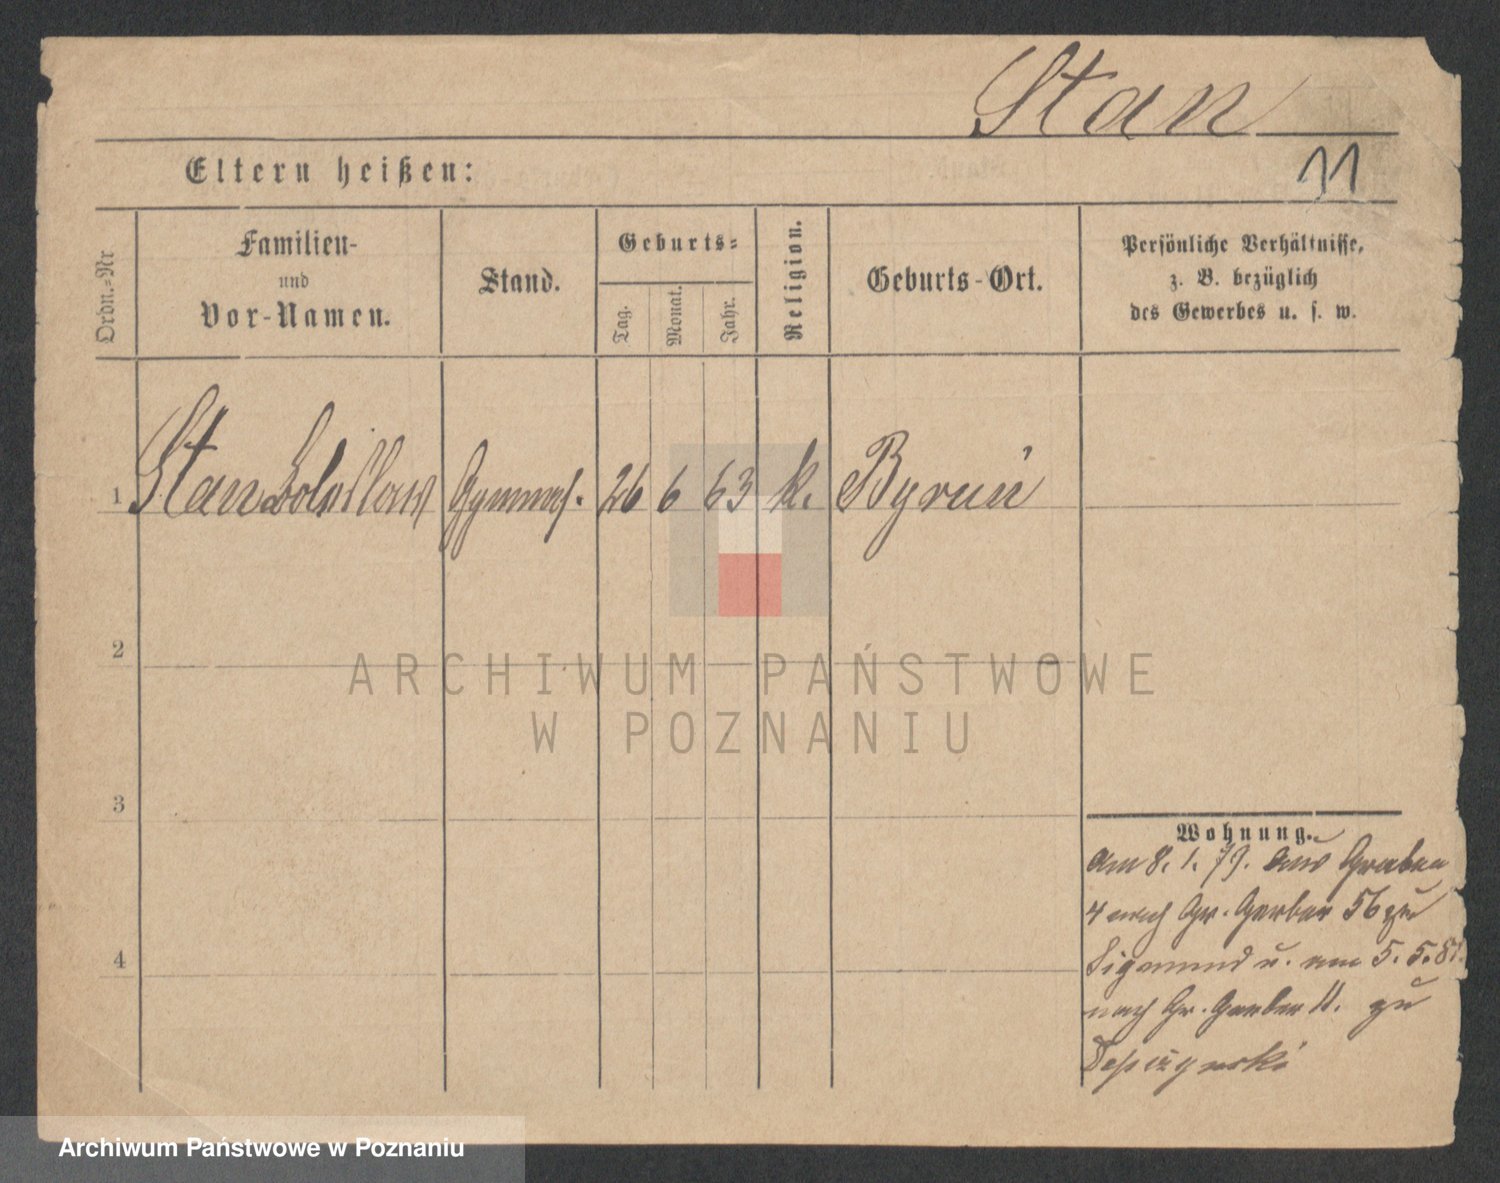 Stan
Eltern heißen:
11
Ordn.-Nr
Familien-
und
Vor-Namen.
Stand.
Geburts-
Tag.
Monat.
Jahr.
Religion.
Geburts-Ort.
Persönliche Verhältnisse,
z. B. bezüglich
des Gewerbes u. s. w.
1 Stan Boleslaw Gymnas. 26 6 63 k. Byrun
2
3
4
Wohnung.
Am 8. 1. 79. aus Graben
4 nach Gr. Gerber 56 zu
Sigmund u. am 5. 5. 81.
nach Gr. Gerber 11. zu
ARCHIWUM PAŃSTWOWE
W POZNANIU
Archiwum Państwowe w Poznaniu